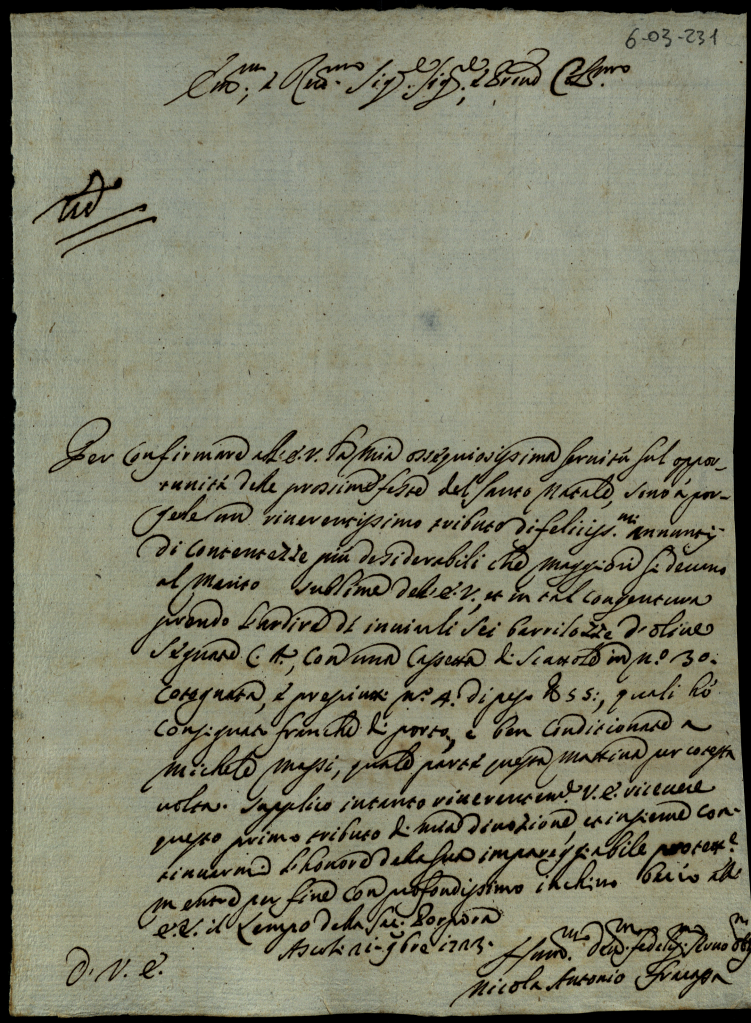 6-03-231
Em.mo, e Rev.mo Sig.re Sig.re, e Pron Col.mo
Per Confirmare all'E.V. la mia ossequiosissima servitù sul oppor-
tunità delle prossime feste del Santo Natale, sono à por-
gerle un riverentissimo tributo di feliciss.mi annuntij
di Contentezze più desiderabili che maggiori si devono
al Merito sublime dell'E.V., et in tal congentura
prendo l'ardire di inviarli sei barrilozze d'olive
segnate C.A., con una Cassetta di Scattole in n.º 30.
Cotognata, e n.º 4. di peso 55:, quali hò
Consignate franche di porto, e ben Conditionate a
Michele Massi, quale parte questa mattina per cotesta
volta. Supplico intanto riverentem.e V.E. ricevere
questo primo tributo di mia divozione, et insieme Con-
tinuarmi l'honore della sua impareggiabile protett.e
mentre per fine con profondissimo inchino bacio all'
E.V. il Lempo della Sac. Porpora
Ascoli 21 9bre 1723.
D. V. E.
Hum.mo Dev.mo fedeliss.mo Servo obl.mo
Nicola Antonio